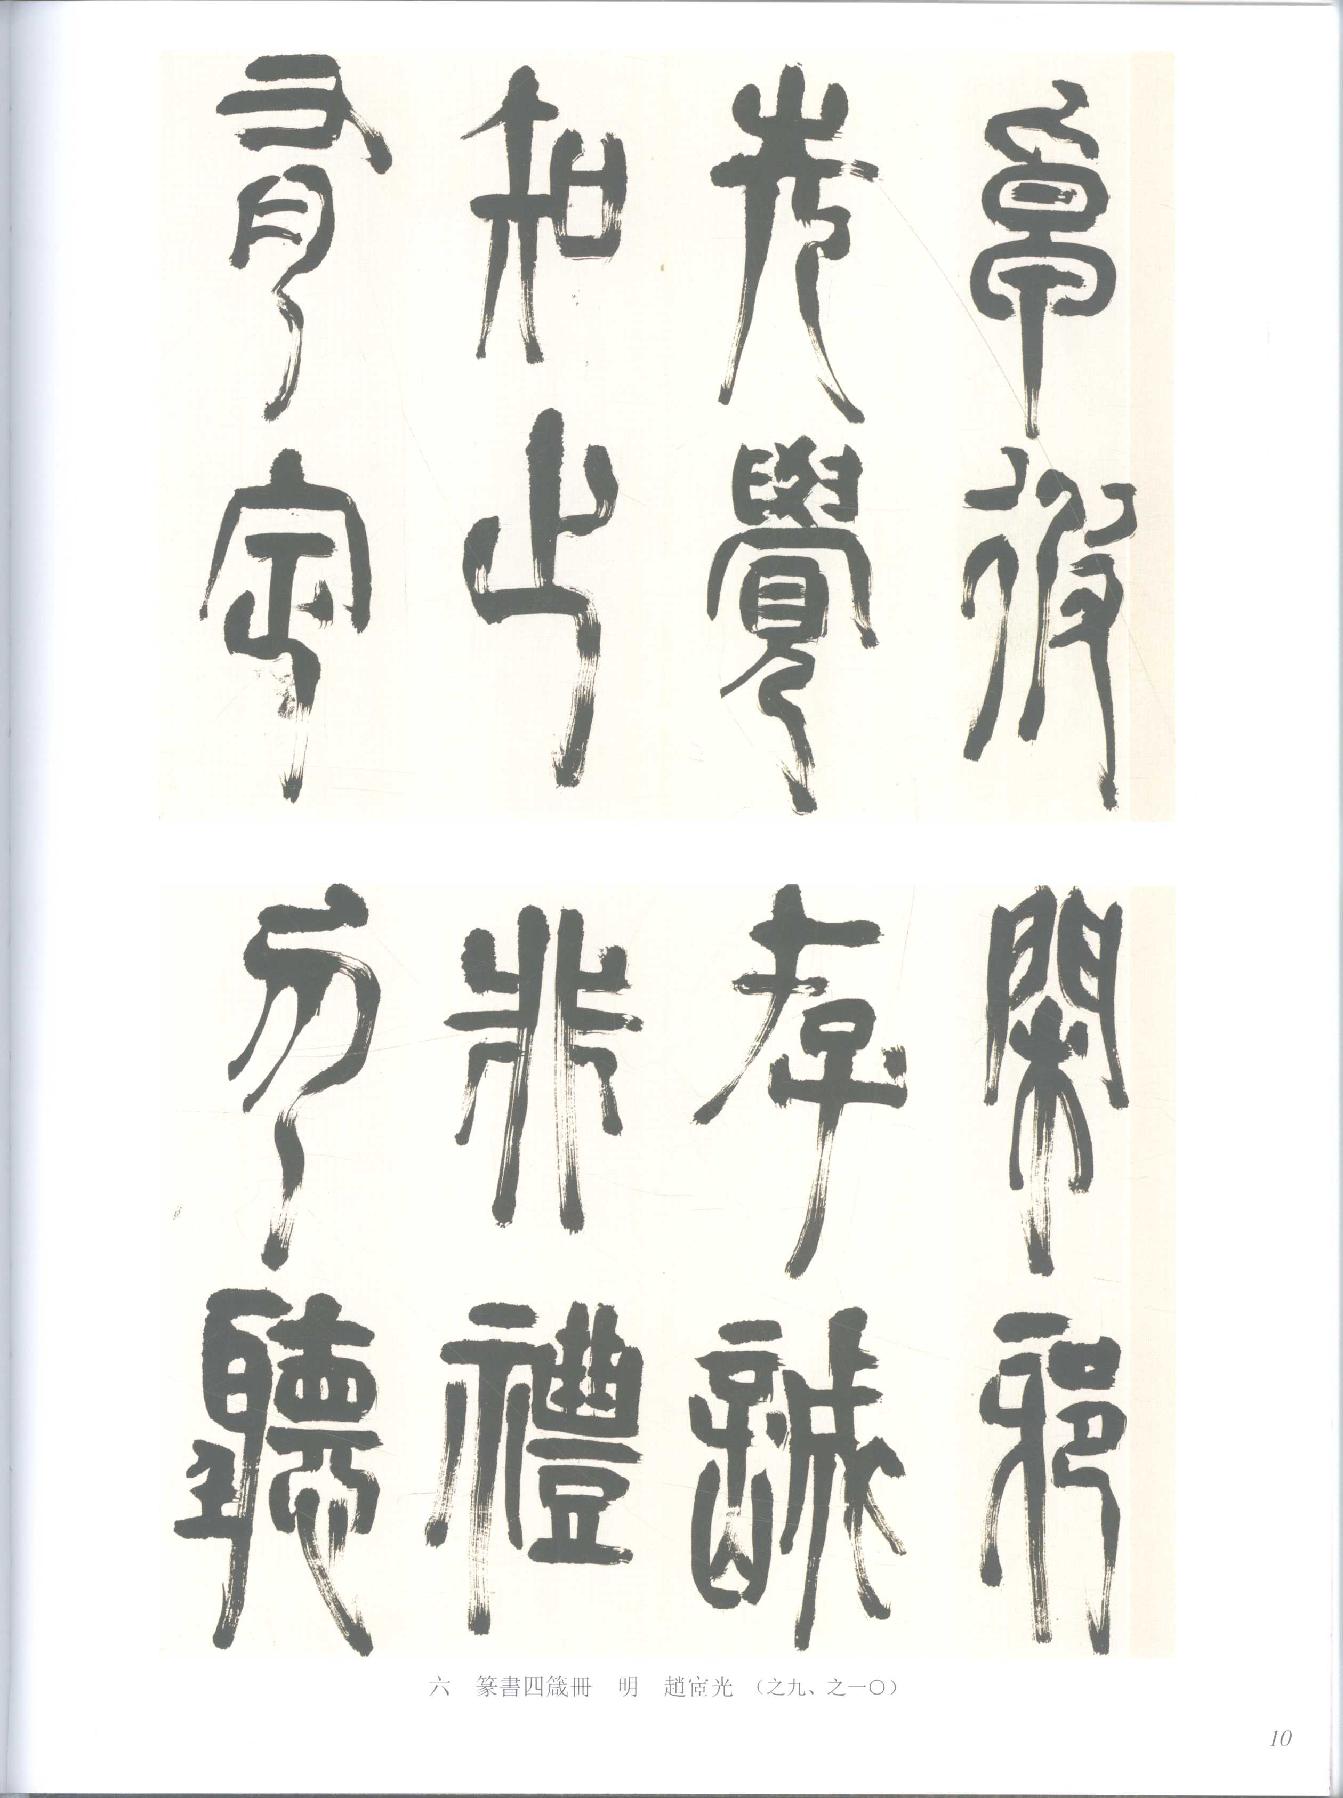 卓彼
先覺
知止
有定
閑邪
存誠
非禮
勿聽
六　篆書四箴冊　明　趙宧光　（之九、之一〇）
10